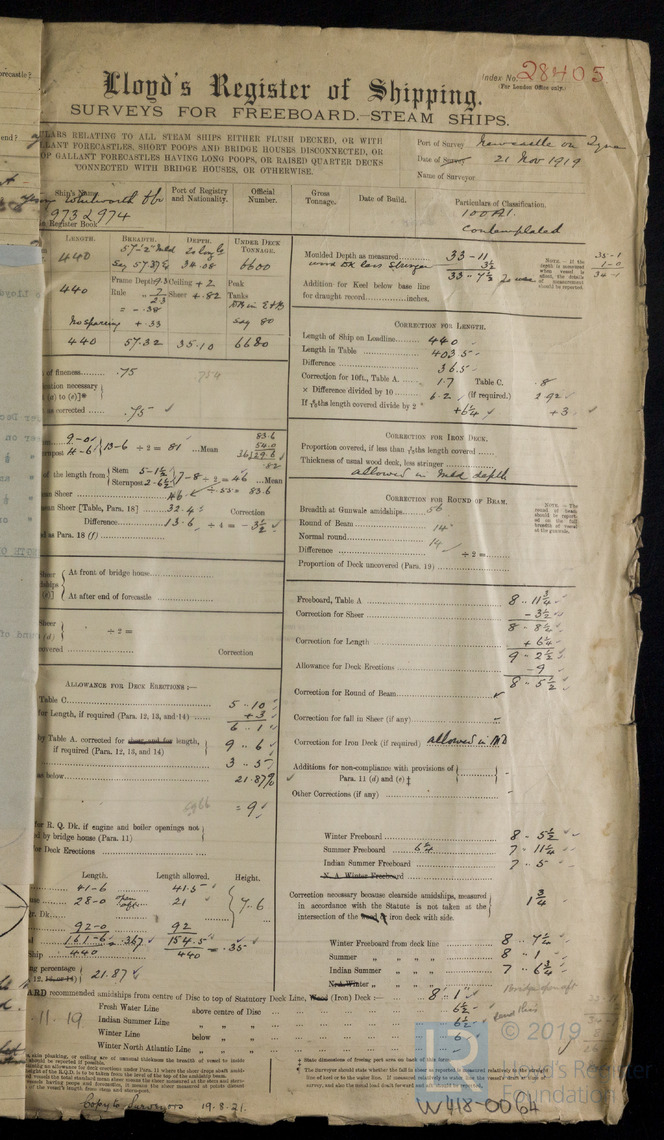 Index No. 28405
(For London Office only.)
Lloyd's Register of Shipping.
SURVEYS FOR FREEBOARD.—STEAM SHIPS.
LARS RELATING TO ALL STEAM SHIPS EITHER FLUSH DECKED, OR WITH
LLANT FORECASTLES, SHORT POOPS AND BRIDGE HOUSES DISCONNECTED, OR
OP GALLANT FORECASTLES HAVING LONG POOPS, OR RAISED QUARTER DECKS
CONNECTED WITH BRIDGE HOUSES, OR OTHERWISE.
Port of Survey Newcastle on Tyne
Date of Survey 21 Nov 1919
Name of Surveyor
Ship's Name
Port of Registry and Nationality.
Official Number.
Gross Tonnage.
Date of Build.
Particulars of Classification.
Whitworth
973 & 974
Register Book
100A1.
Contemplated
LENGTH. BREADTH. DEPTH. UNDER DECK TONNAGE.
440 57'-2" Mld
Say 57.37 34.08 6600
440 Frame Depth Ceiling + 2 Peak
Rule Sheer + .82 Tanks
= - .38
No sparring + .33 say 80
440 57.32 35.10 6680
Moulded Depth as measured 33 - 11
3½
33 - 7½
Addition for Keel below base line
for draught record inches.
NOTE.—If the depth is measured when vessel is about, the details of measurement should be reported.
35 - 1
1 - 0
34 - 1
CORRECTION FOR LENGTH.
Length of Ship on Loadline 440
Length in Table 403.5
Difference 36.5
Correction for 10ft., Table A. 1.7 Table C. .8
× Difference divided by 10 6.2 (if required.) 2.92
If 6/10ths length covered divide by 2 +6¼ +3
of fineness .75 754
ation necessary
(a) to (e)]*
as corrected .75
9-0 13-6 ÷ 2 = 81 ...Mean
rnpost 4-6
83.6
54.0
36)29.6
.82
of the length from Stem 5-1½ 7-8 ÷ 2 = 46 ...Mean
Sternpost 2-6½
an Sheer 46 83.6
an Sheer [Table, Para. 18] 32.4 Correction
Difference 13.6 ÷ 4 = - 3½
d as Para. 18 (f)
CORRECTION FOR IRON DECK.
Proportion covered, if less than 7/10ths length covered
Thickness of usual wood deck, less stringer
allowed in Mld depth
CORRECTION FOR ROUND OF BEAM.
Breadth at Gunwale amidships 56
Round of Beam 14
Normal round 14
Difference ÷ 2 =
Proportion of Deck uncovered (Para. 19)
NOTE.—The round of beam should be reported on the full breadth of vessel at the gunwale.
Sheer
At front of bridge house
At after end of forecastle
Sheer
(d)
÷ 2 =
overed
Correction
Freeboard, Table A 8 .. 11¾
Correction for Sheer - 3½
8 .. 8¼
Correction for Length + 6¼
9 - 2½
Allowance for Deck Erections - 9
8 .. 5½
Correction for Round of Beam
Correction for fall in Sheer (if any)
Correction for Iron Deck (if required) allowed in MD
Additions for non-compliance with provisions of
Para. 11 (d) and (e) ‡
Other Corrections (if any)
ALLOWANCE FOR DECK ERECTIONS :—
Table C. 5 .. 10
for Length, if required (Para. 12, 13, and 14) + 3
6 .. 1
by Table A. corrected for sheer, and for length,
if required (Para. 12, 13, and 14) 9 .. 6
3 .. 5
as below 21.87%
= 9
for R. Q. Dk. if engine and boiler openings not
d by bridge house (Para. 11)
for Deck Erections
Length. Length allowed. Height.
41-6 41.5
28-0 open aft 21 7.6
92-0 92
161-6 .367 154.5 = .35
Ship 440 440
ng percentage
12, 13, or 14) 21.87
Winter Freeboard 8 - 5½
Summer Freeboard 6¼ 7 - 11¼
Indian Summer Freeboard 7 .. 5
N. A. Winter Freeboard
Correction necessary because clearside amidships, measured
in accordance with the Statute is not taken at the
intersection of the wood iron deck with side. 1¾
Winter Freeboard from deck line 8 .. 7¼
Summer „ „ „ „ 8 .. 1
Indian Summer „ „ „ „ 7 .. 6¾
N.A. Winter „ „ „ „
ARD recommended amidships from centre of Disc to top of Statutory Deck Line, Wood (Iron) Deck :— 8' 1"
Fresh Water Line above centre of Disc 6½
11. 19 Indian Summer Line „ „ „ 6½
Winter Line below „ „ 6
Winter North Atlantic Line „ „ „
* State dimensions of freeing port area on back of this form.
Copy to Surveyors 19.8.21.
© 2019
Lloyd's Register
Foundation
W418-0064